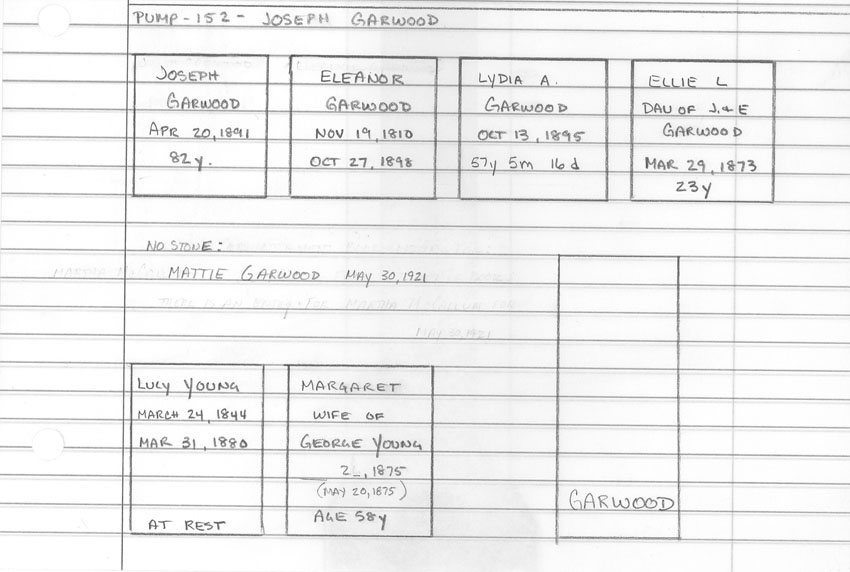 PUMP-152- JOSEPH GARWOOD
JOSEPH
GARWOOD
APR 20, 1891
82 y.
ELEANOR
GARWOOD
NOV 19, 1810
OCT 27, 1898
LYDIA A.
GARWOOD
OCT 13, 1895
57y 5m 16d
ELLIE L
DAU OF J. & E
GARWOOD
MAR 29, 1873
23y
NO STONE:
MATTIE GARWOOD MAY 30, 1921
THERE IS AN ENTRY FOR MARTHA FOR
MAY 30, 1921
LUCY YOUNG
MARCH 24, 1844
MAR 31, 1880
AT REST
MARGARET
WIFE OF
GEORGE YOUNG
2_, 1875
(MAY 20, 1875)
AGE 58y
GARWOOD